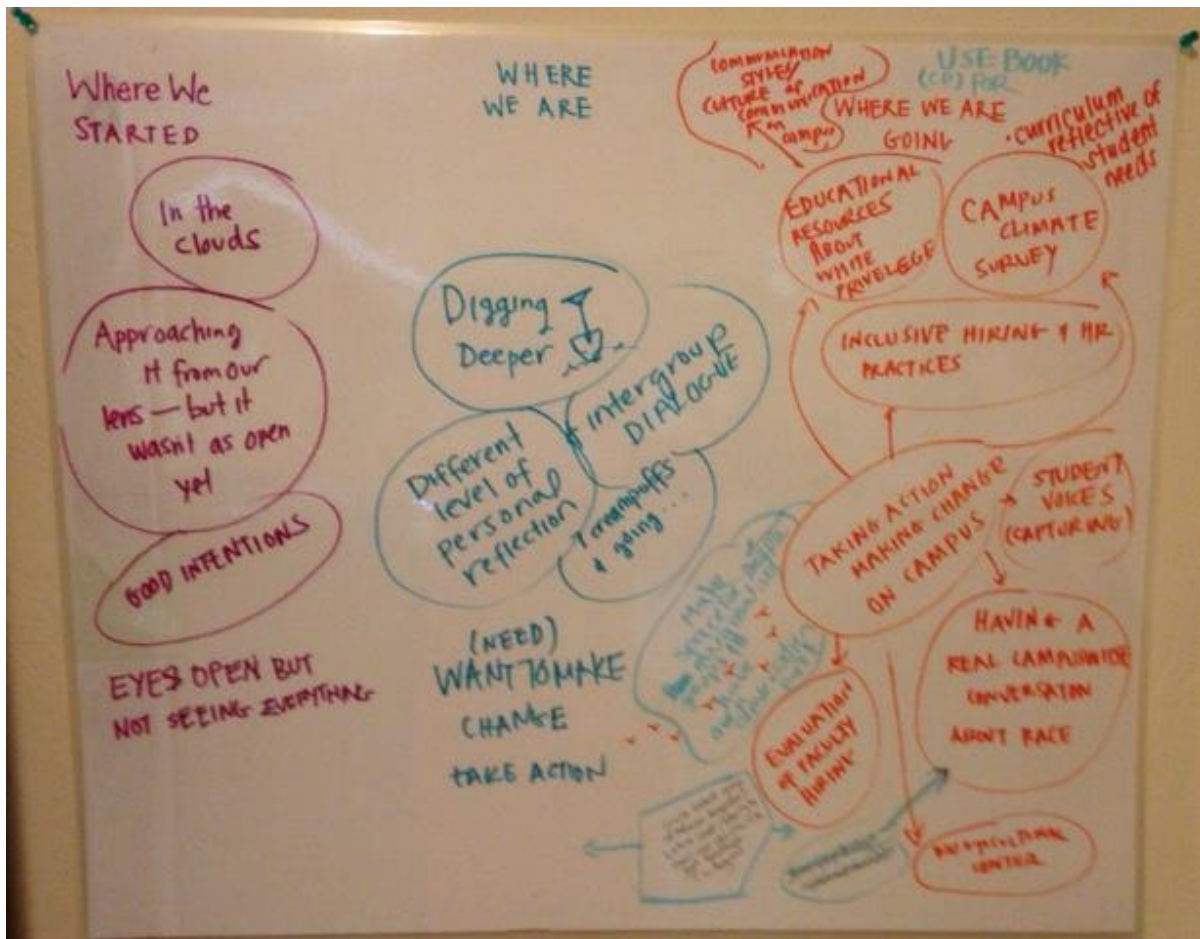 Where We
STARTED
In the
clouds
Approaching
it from our
lens — but it
wasn't as open
yet
GOOD INTENTIONS
EYES OPEN BUT
NOT SEEING EVERYTHING
WHERE
WE ARE
Digging
Deeper
intergroup
DIALOGUE
Different
level of
personal
reflection
creampuffs
& going...
(NEED)
WANT TO MAKE
CHANGE
TAKE ACTION
COMMUNICATION
STYLES/
CULTURE of
communication
on
campus
USE BOOK
(CD) FOR
WHERE WE ARE
GOING
• curriculum
reflective of
student
needs
EDUCATIONAL
RESOURCES
ABOUT
WHITE
PRIVELEGE
CAMPUS
CLIMATE
SURVEY
INCLUSIVE HIRING & HR
PRACTICES
TAKING ACTION
MAKING CHANGE
ON CAMPUS
STUDENT
VOICES
(CAPTURING)
HAVING A
REAL CAMPUSWIDE
CONVERSATION
ABOUT RACE
EVALUATION
of FACULTY
HIRING
CENTER